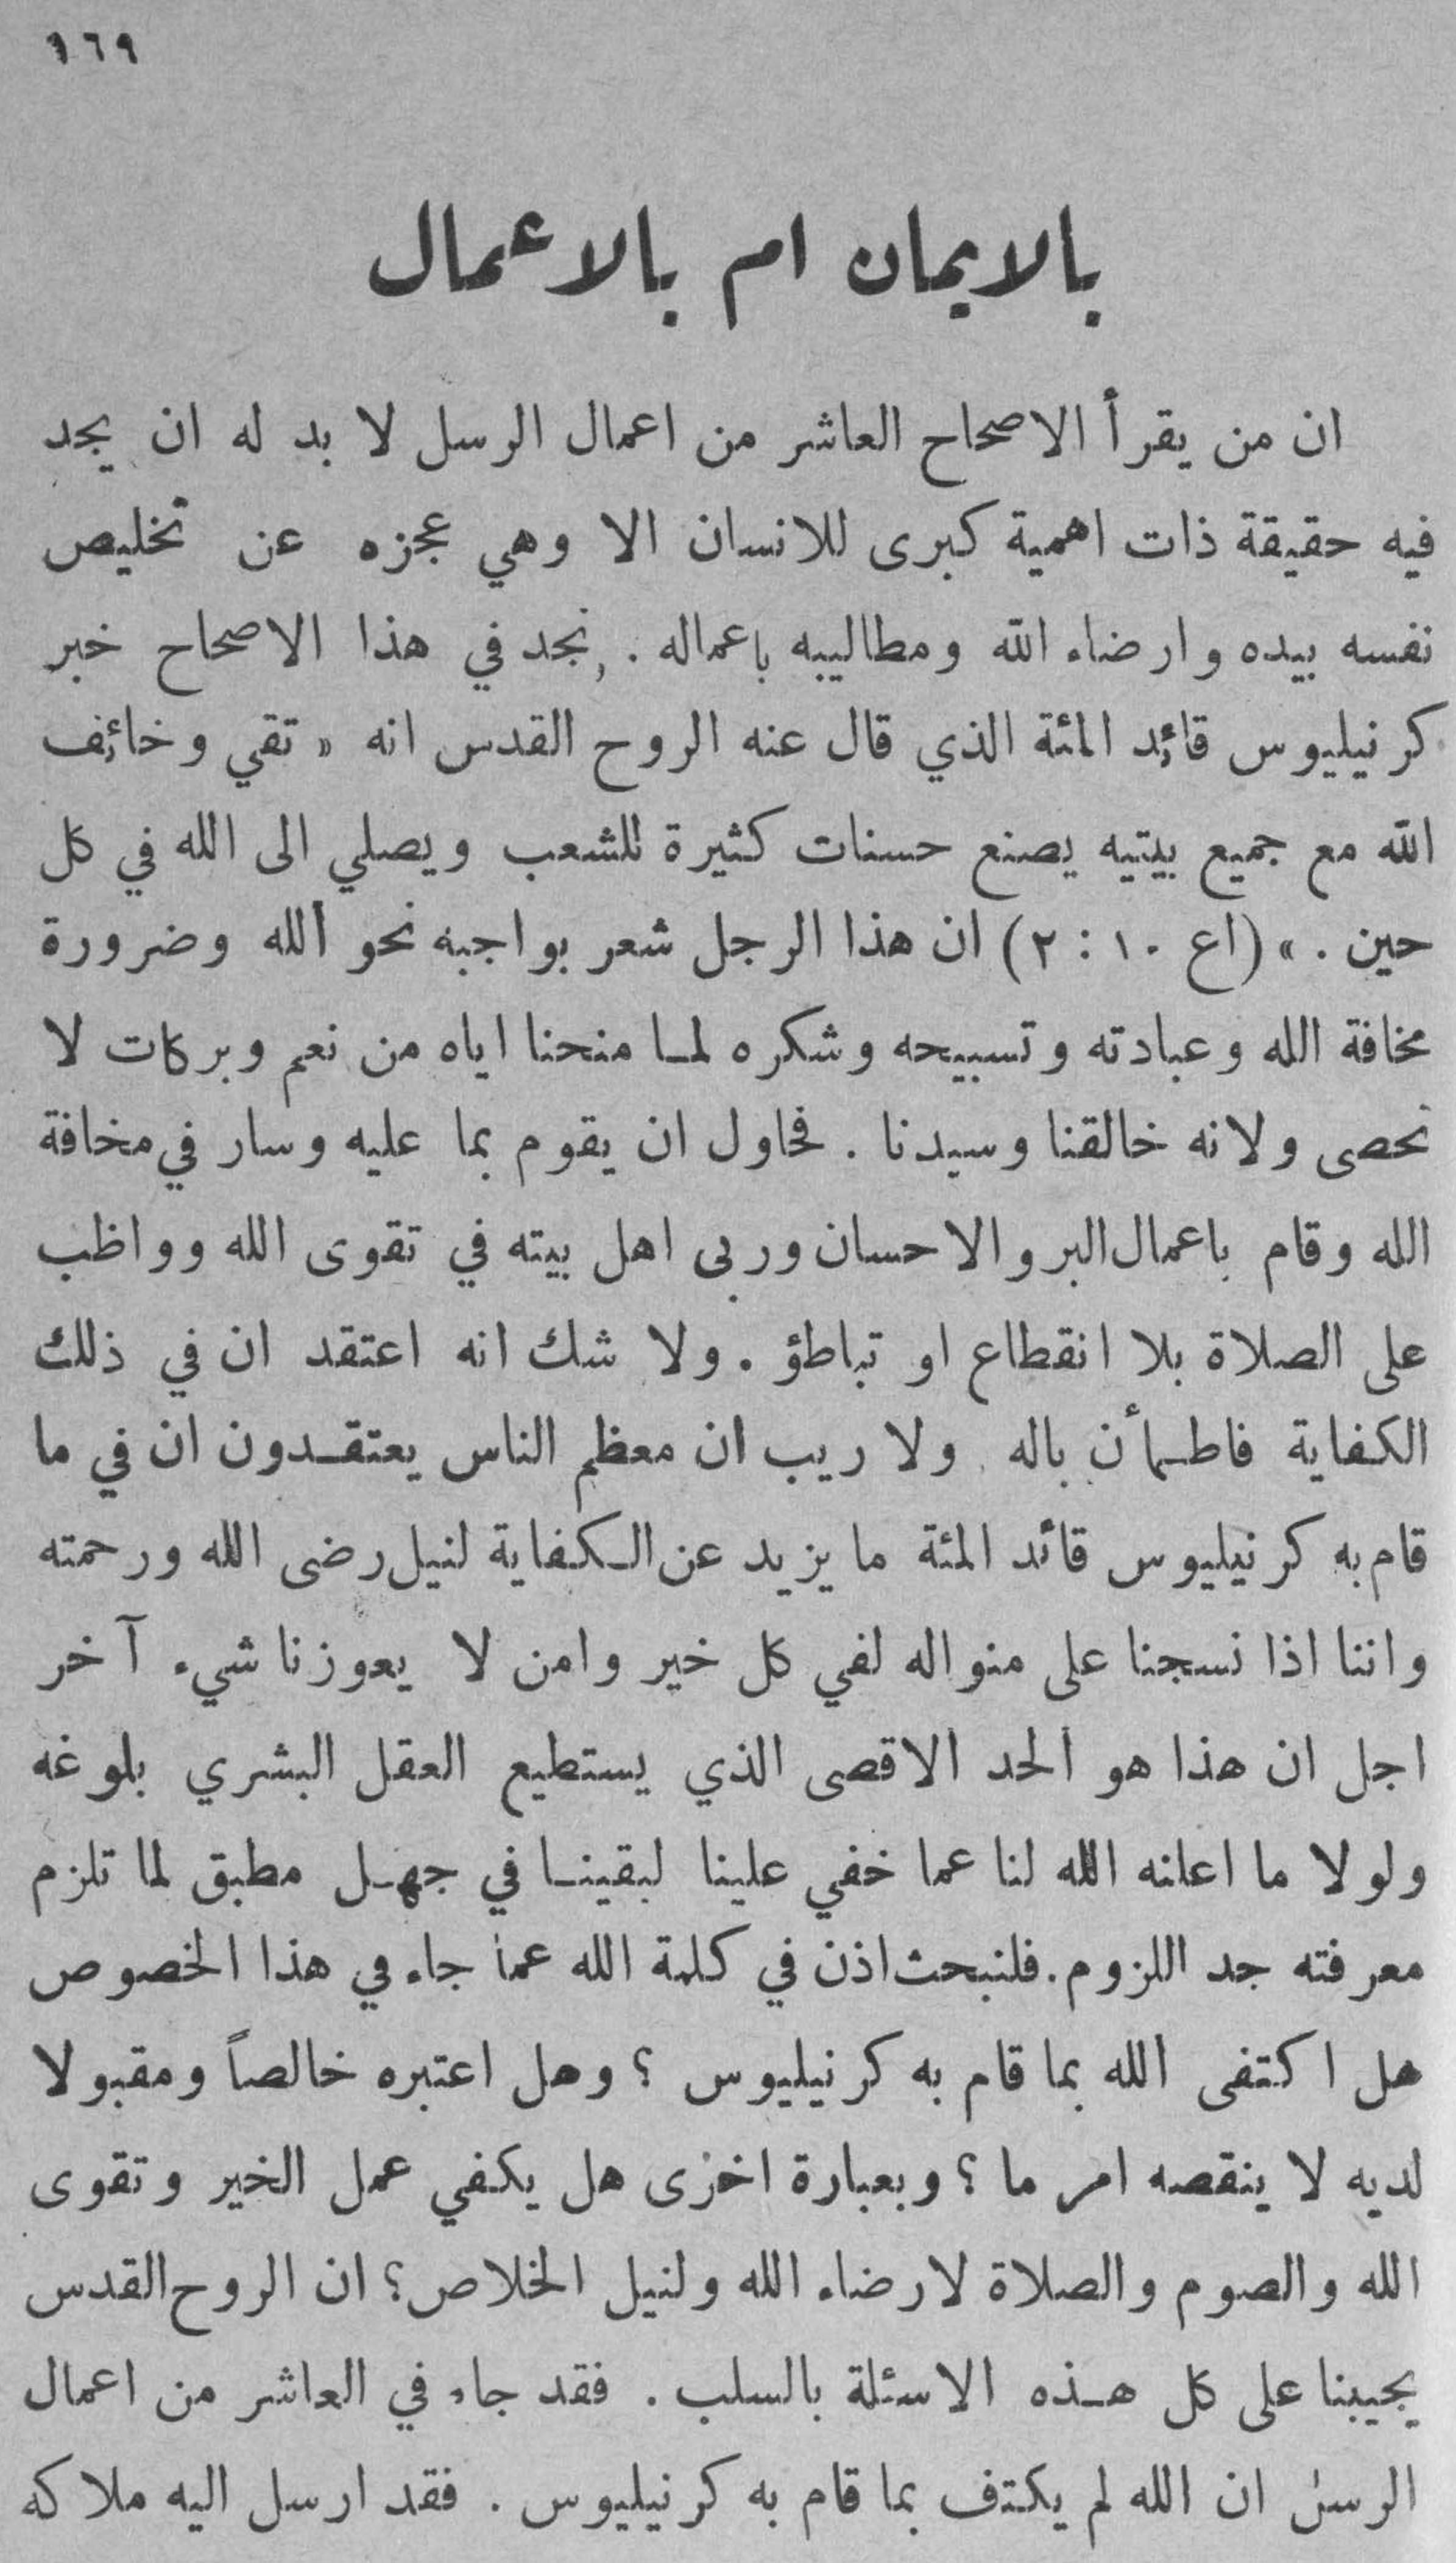 ١٦٩
بالايمان ام بالاعمال
ان من يقرأ الاصحاح العاشر من اعمال الرسل لا بد له ان يجد
فيه حقيقة ذات اهمية كبرى للانسان الا وهي عجزه عن تخليص
نفسه بيده وارضاء الله ومطاليبه باعماله . نجد في هذا الاصحاح خبر
كرنيليوس قائد المئة الذي قال عنه الروح القدس انه « تقي وخائف
الله مع جميع بيتيه يصنع حسنات كثيرة للشعب ويصلي الى الله في كل
حين . » (اع ١٠ : ٢) ان هذا الرجل شعر بواجبه نحو الله وضرورة
مخافة الله وعبادته وتسبيحه وشكره لما منحنا اياه من نعم وبركات لا
تحصى ولانه خالقنا وسيدنا . فحاول ان يقوم بما عليه وسار في مخافة
الله وقام باعمال البر والاحسان وربى اهل بيته في تقوى الله وواظب
على الصلاة بلا انقطاع او تباطؤ . ولا شك انه اعتقد ان في ذلك
الكفاية فاطمأن باله . ولا ريب ان معظم الناس يعتقدون ان في ما
قام به كرنيليوس قائد المئة ما يزيد عن الكفاية لنيل رضى الله ورحمته
واننا اذا نسجنا على منواله لفي كل خير وامن لا يعوزنا شيء آخر
اجل ان هذا هو الحد الاقصى الذي يستطيع العقل البشري بلوغه
ولولا ما اعلنه الله لنا عما خفي علينا لبقينا في جهل مطبق لما تلزم
معرفته جد اللزوم . فلنبحث اذن في كلمة الله عما جاء في هذا الخصوص
هل اكتفى الله بما قام به كرنيليوس ؟ وهل اعتبره خالصاً ومقبولا
لديه لا ينقصه امر ما ؟ وبعبارة اخرى هل يكفي عمل الخير وتقوى
الله والصوم والصلاة لارضاء الله ولنيل الخلاص ؟ ان الروح القدس
يجيبنا على كل هذه الاسئلة بالسلب . فقد جاء في العاشر من اعمال
الرسل ان الله لم يكتف بما قام به كرنيليوس . فقد ارسل اليه ملاكه